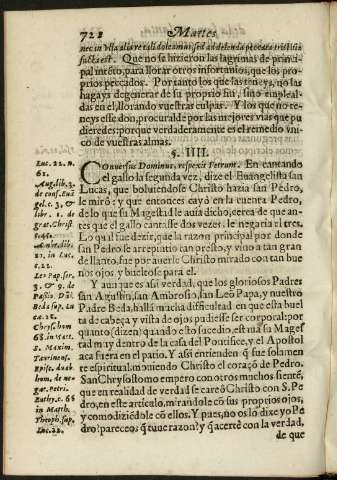 722 Martes
nec in vlla alia re tali doleamus, sed ad delenda peccata tristitia
facta est. Que no se hizieron las lagrimas de princi-
pal intẽto, para llorar otros infortunios, que los pro-
prios pecados. Por tanto los que las teneys, no las
hagays degenerar de su proprio fin, sino emplealdas
en el, llorando vuestras culpas. Y los que no te-
neys esse don, procuralde por las mejores vias que pu
dieredes: porque verdaderamente es el remedio vni-
co de vuestras almas.
§. IIII.
Conuersus Dominus, respexit Petrum. En cantando
el gallo la segunda vez, dize el Euangelista san
Lucas, que boluiendose Christo hazia san Pedro,
le miró: y que entonces cayó en la cuenta Pedro,
de lo que su Magestad le auia dicho, cerca de que an-
tes que el gallo cantasse dos vezes, le negaria el tres.
Lo qual fue dezir, que la razon principal por donde
san Pedro se arrepintio tan presto, y vino a tan gran
de llanto, fue por auerle Christo mirado con tan bue
nos ojos, y bueltose para el.
Y aunque es assi verdad, que los gloriosos Padres
san Agustin, san Ambrosio, san Leõ Papa, y nuestro
Padre Beda, hallã mucha dificultad en que esta buel
ta de cabeça y vista de ojos pudiesse ser corporal: por
quanto (dizen) quando esto sucedio, estauã su Mages
tad muy dentro de la casa del Pontifice, y el Apostol
aca fuera en el patio. Y assi entienden q̃ fue solamen
te espiritual, mouiendo Christo el coraçõ de Pedro.
San Chrysostomo empero con otros muchos siente,
que en realidad de verdad se careó Christo con S. Pe
dro, en este articulo, mirandole cõ sus propios ojos,
y como diziẽdole cõ ellos. Y pues, no os lo dixe yo Pe
dro? pareceos q̃ tuue razon? y q̃ acerté con la verdad,
de que
Luc. 22. n.
62.
Aug. lib. 3.
de cons. Euã
gel. c. 3, &
lib. 1. de
grat. Christ
c. 45.
Ambr. lib.
21. in Luc.
c. 22.
Leo Pap. ser.
3. & 9. de
Passio. Dñi.
Beda sup. Lu
ca. 22.
Chrys. hom
68. in
S. Maxim.
Taurinens.
Episc.
hom. de ne-
gat. Petri.
Euthy. c. 66
in Matth.
Theoph. sup.
Luc. 22.